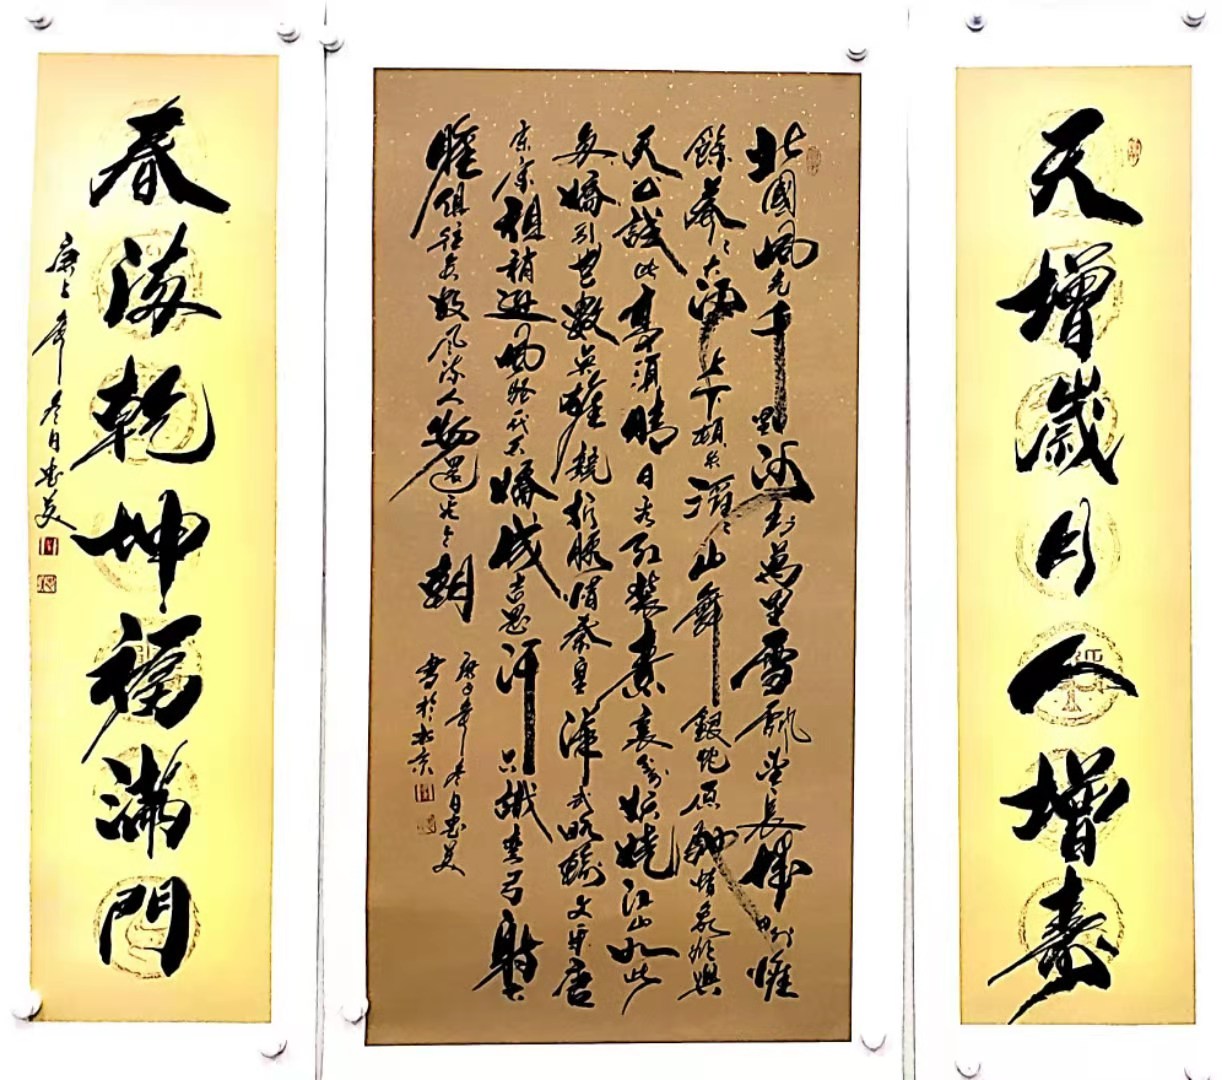 天增歲月人增壽
北國風光千里冰封萬里雪飄望長城内外惟
餘莽々大河上下頓失滔々山舞銀蛇原馳蠟象欲與
天公試比高須晴日看紅裝素裹分外妖嬈江山如此
多嬌引無數英雄競折腰惜秦皇漢武略輸文采唐
宗宋祖稍遜風騷代天嬌成吉思汗只識彎弓射大
雕俱往矣數風流人物還看今朝
庚子年冬日忠美
書於北京
春滿乾坤福滿門
庚子年冬日忠美